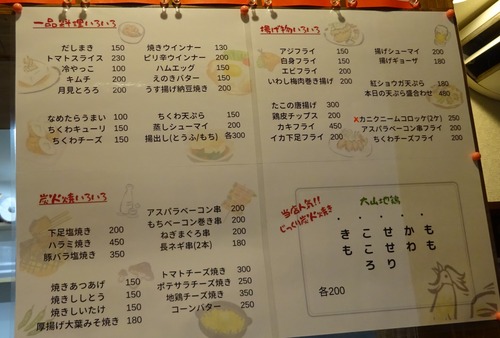 一品料理いろいろ
だしまき 150
トマトスライス 230
冷やっこ 100
キムチ 200
月見とろろ 200
焼きウインナー 130
ピリ辛ウインナー 200
ハムエッグ 150
えのきバター 150
うす揚げ納豆焼き 200
なめたらうまい 100
ちくわキューリ 150
ちくわチーズ 150
ちくわ天ぷら 150
蒸しシューマイ 200
揚出し(とうふ/もち) 各300
炭火焼いろいろ
下足塩焼き 200
ハラミ焼き 450
豚バラ塩焼き 350
アスパラベーコン串 200
もちベーコン巻き串 200
ねぎまぐろ串 200
長ネギ串(2本) 180
焼きあつあげ 150
焼きししとう 150
焼きしいたけ 150
厚揚げ大葉みそ焼き 180
トマトチーズ焼き 300
ポテサラチーズ焼き 250
地鶏チーズ焼き 350
コーンバター 250
揚げ物いろいろ
アジフライ 150
白身フライ 150
エビフライ 200
いわし梅肉巻き揚げ 200
揚げシューマイ 200
揚げギョーザ 180
紅ショウガ天ぷら 180
本日の天ぷら盛合わせ
たこの唐揚げ 300
鶏皮チップス 200
カキフライ 450
イカ下足フライ 200
×カニクニームコロッケ(2ケ) 250
アスパラベーコン串フライ 200
ちくわチーズフライ 200
当店人気!!
じっくり炭火焼き
大山地鶏
・・・・・
きこせかも
もこせわも
ろり
各200